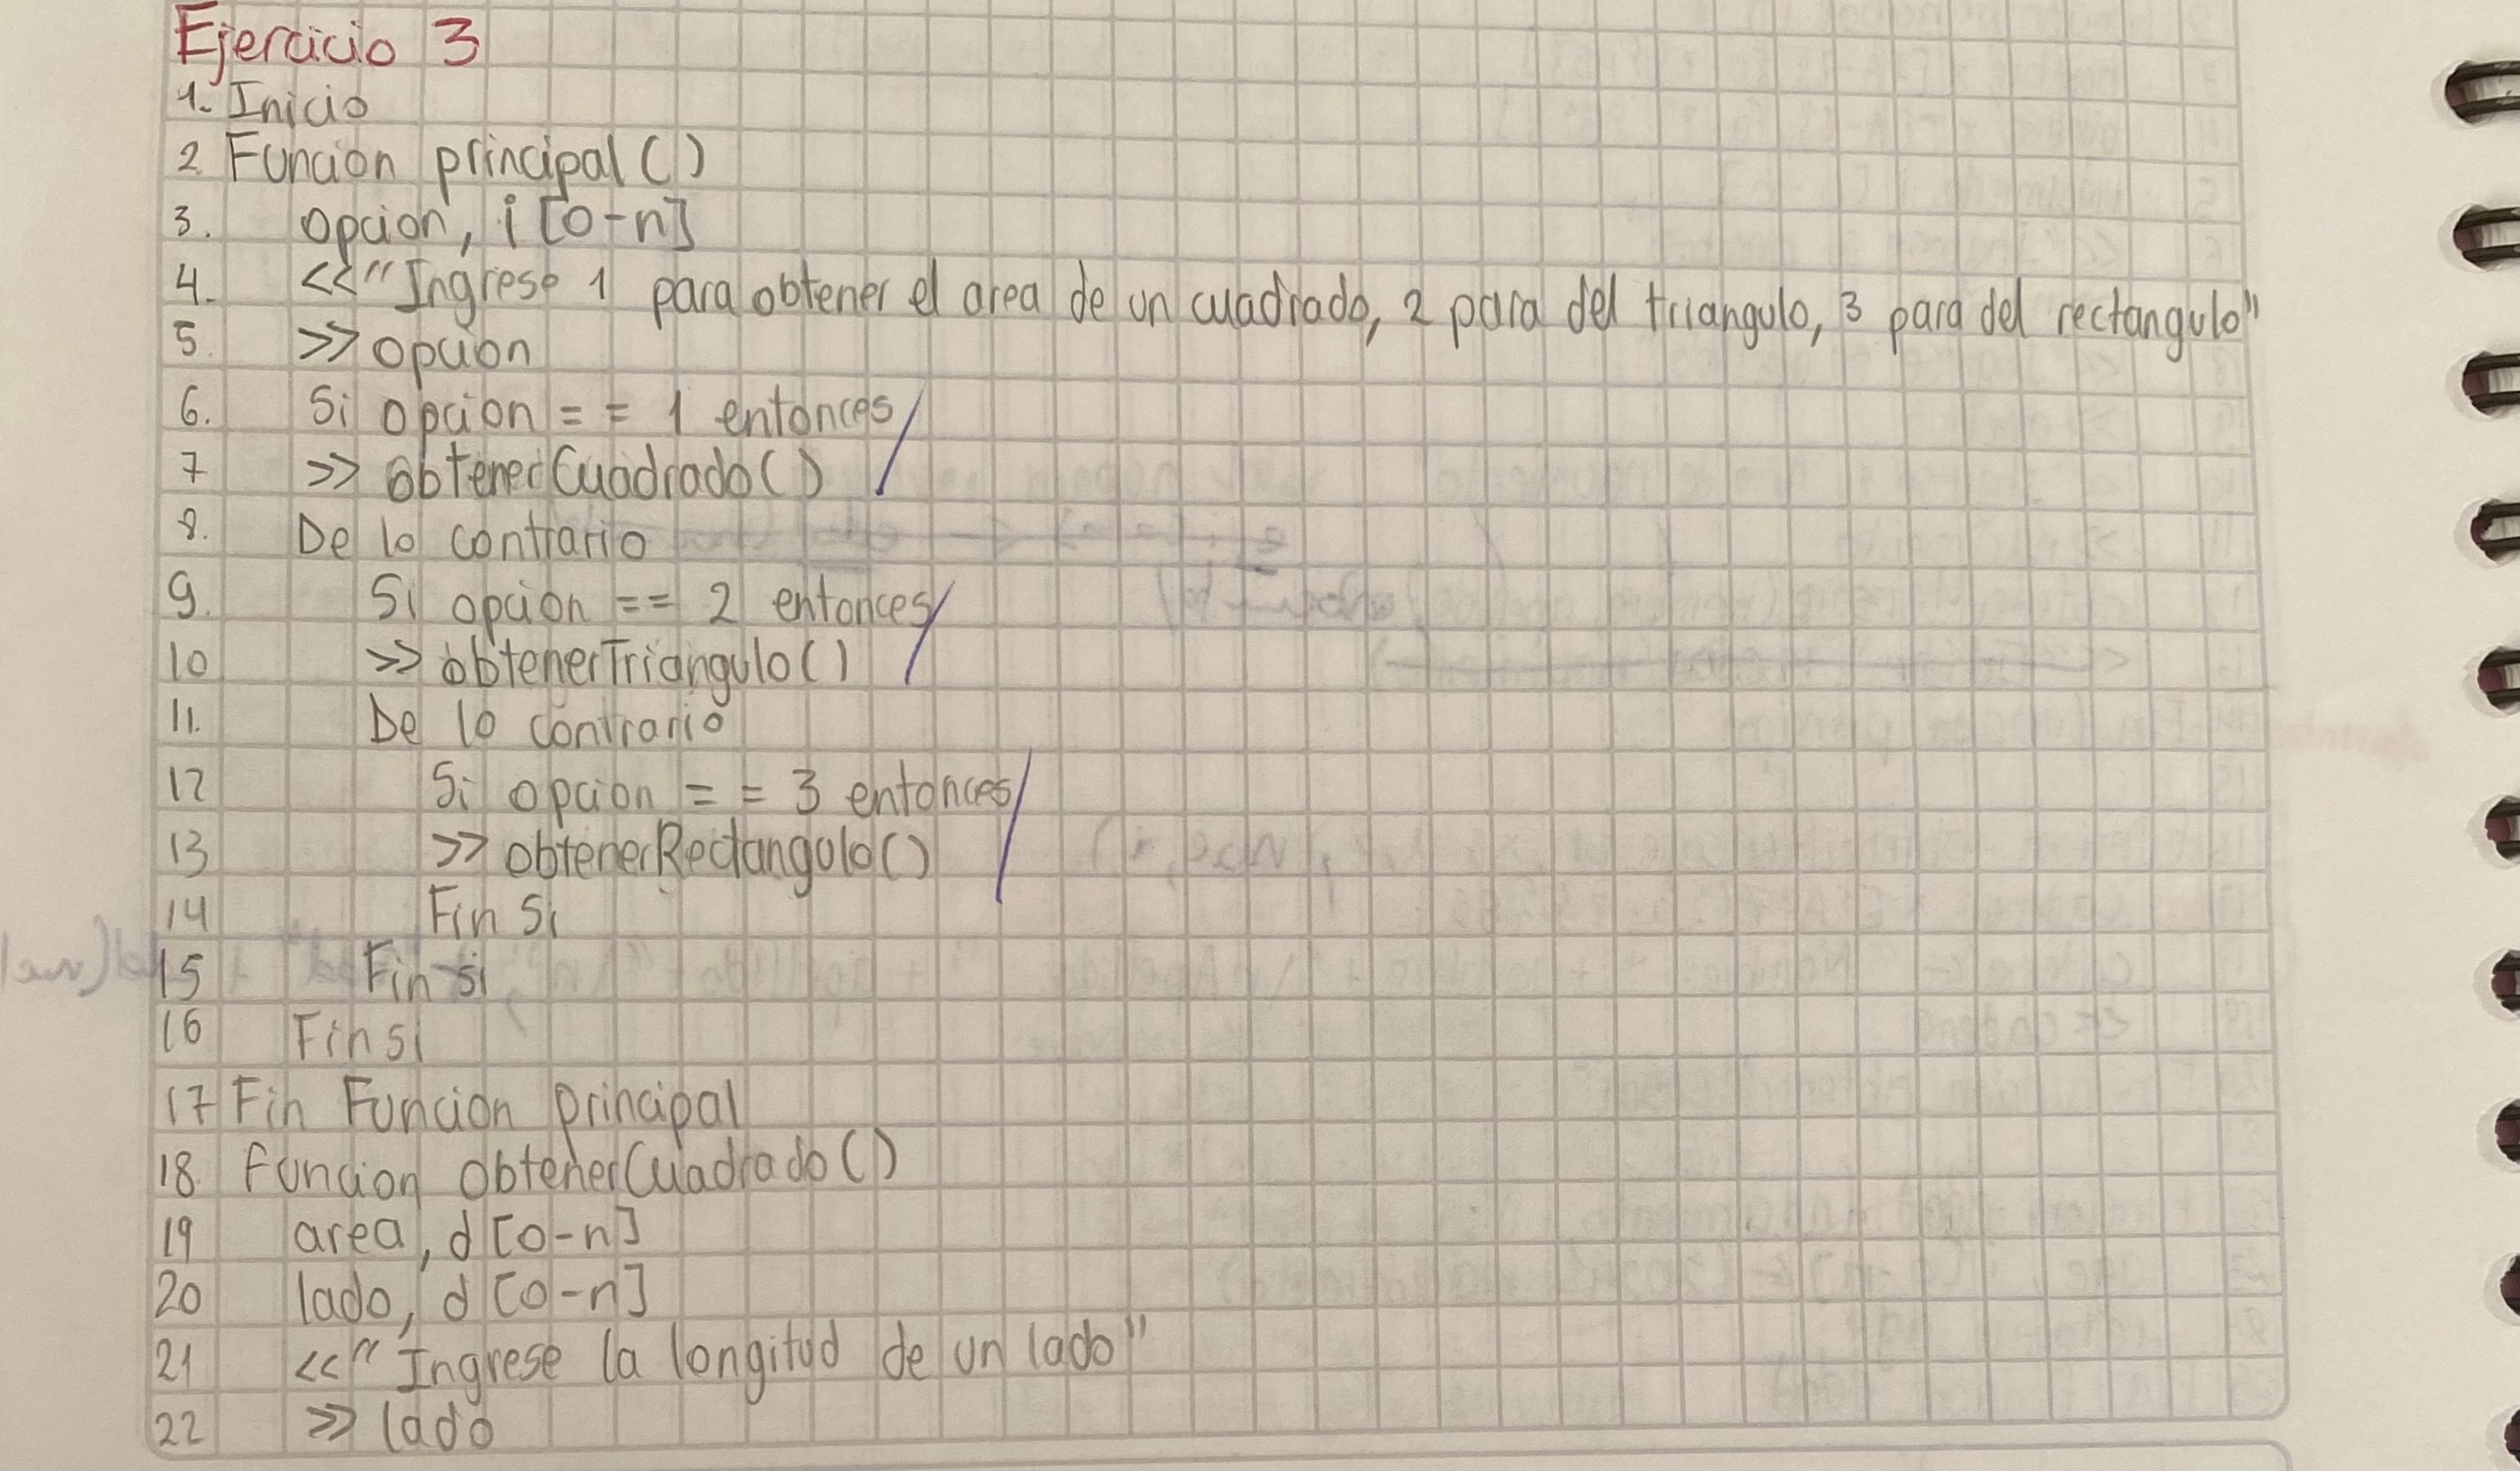 Ejercicio 3
1. Inicio
2 Funcion principal ( )
3. opcion, i [0-n]
4. <<"Ingrese 1 para obtener el area de un cuadrado, 2 para del triangulo, 3 para del rectangulo"
5. >> opcion
6. Si opcion = = 1 entonces /
7 >> obtenerCuadrado( )
8. De lo contrario
9. Si opcion == 2 entonces /
10 >> obtenerTriangulo( )
11. De lo contrario
12 Si opcion = = 3 entonces /
13 >> obtenerRectangulo( )
14 Fin Si
15 Fin si
16 Fin si
17 Fin Funcion principal
18. Funcion obtenerCuadrado ( )
19 area, d [0-n]
20 lado, d [0-n]
21 <<" Ingrese la longitud de un lado"
22 >> lado